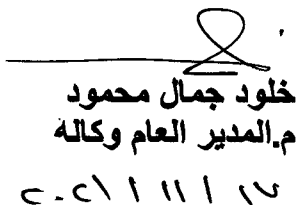 خلود جمال محمود
م.المدير العام وكالة
٢٠٢١ / ١١ / ١٧